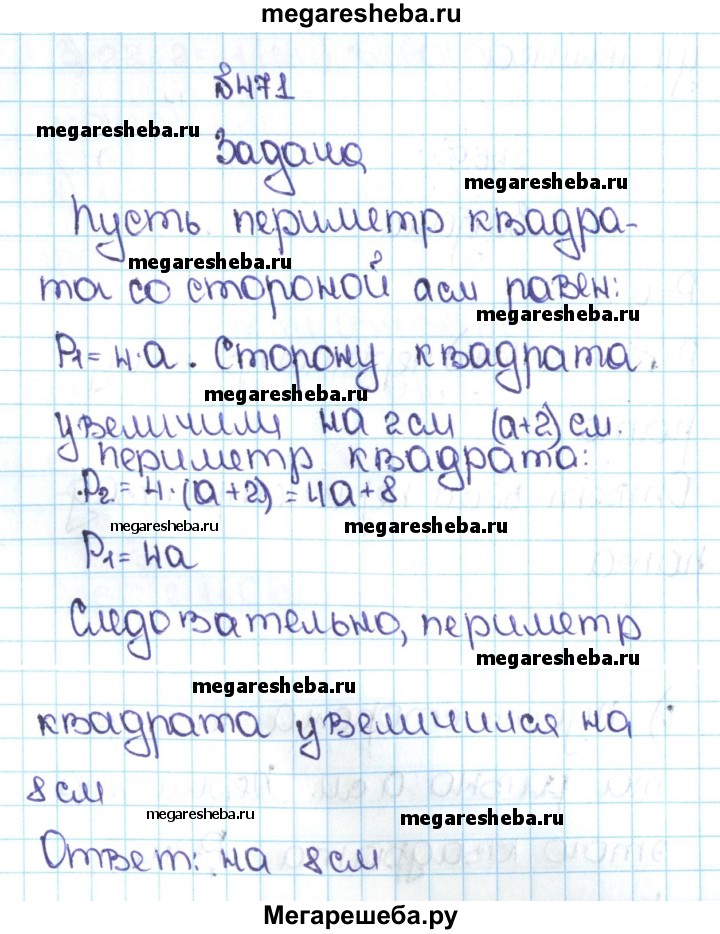 megaresheba.ru
№471
megaresheba.ru
Задача
megaresheba.ru
Пусть периметр квадра-
megaresheba.ru
та со стороной а см равен:
megaresheba.ru
P₁=4·a. Сторону квадрата
megaresheba.ru
увеличили на 2 см (а+2) см.
периметр квадрата:
P₂=4·(a+2)=4a+8
megaresheba.ru megaresheba.ru
P₁=4a
Следовательно, периметр
megaresheba.ru
megaresheba.ru
квадрата увеличился на
8 см
megaresheba.ru megaresheba.ru
Ответ: на 8 см
Мегарешеба.ру